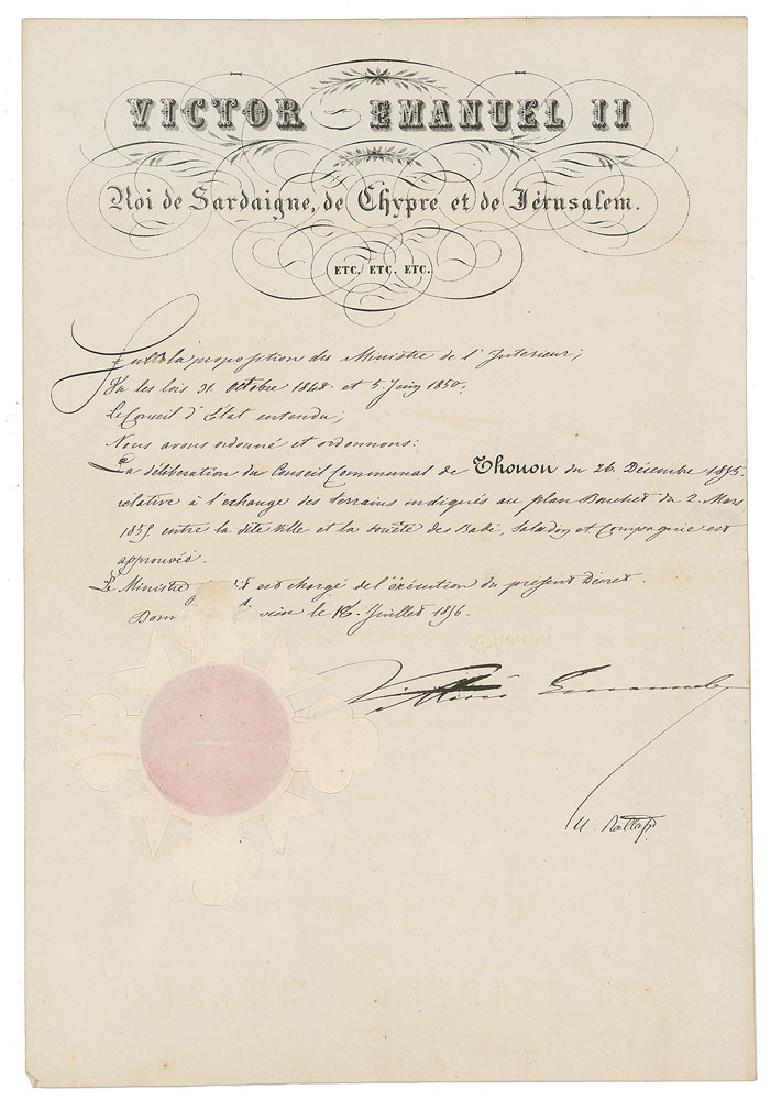 VICTOR EMANUEL II
Roi de Sardaigne, de Chypre et de Jérusalem.
ETC. ETC. ETC.
Sur la proposition du Ministre de l'Interieur;
Vu les lois 31 Octobre 1848 et 5 Juin 1850;
Le Conseil d'Etat entendu;
Nous avons ordonné et ordonnons:
La déliberation du Conseil Communal de Thonon du 26 Décembre 1855.
relative à l'echange des terrains indiqués au plan Bouchet du 2 Mars
1855 entre la dite Ville et la société des Saladin et Compagnie est
approuvée.
Le Ministre est chargé de l'éxécution du présent Décret.
le Juillet 1856.
Vittorio Emanuele
U. Rattazzi